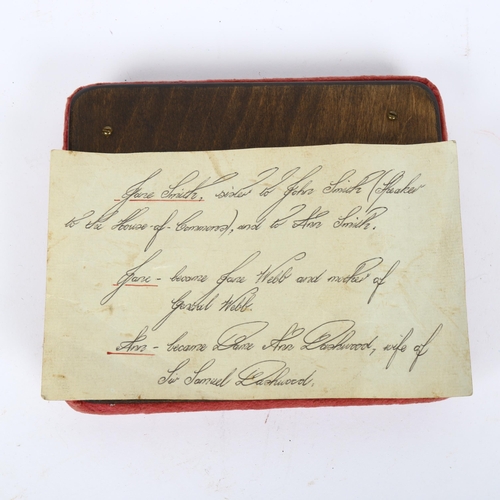 Jane Smith, sister to John Smith (Speaker
to the House-of-Commons), and to Ann Smith.
Jane - became Jane Webb and mother of
General Webb.
Ann - became Dame Ann Dashwood, wife of
Sir Samuel Dashwood.